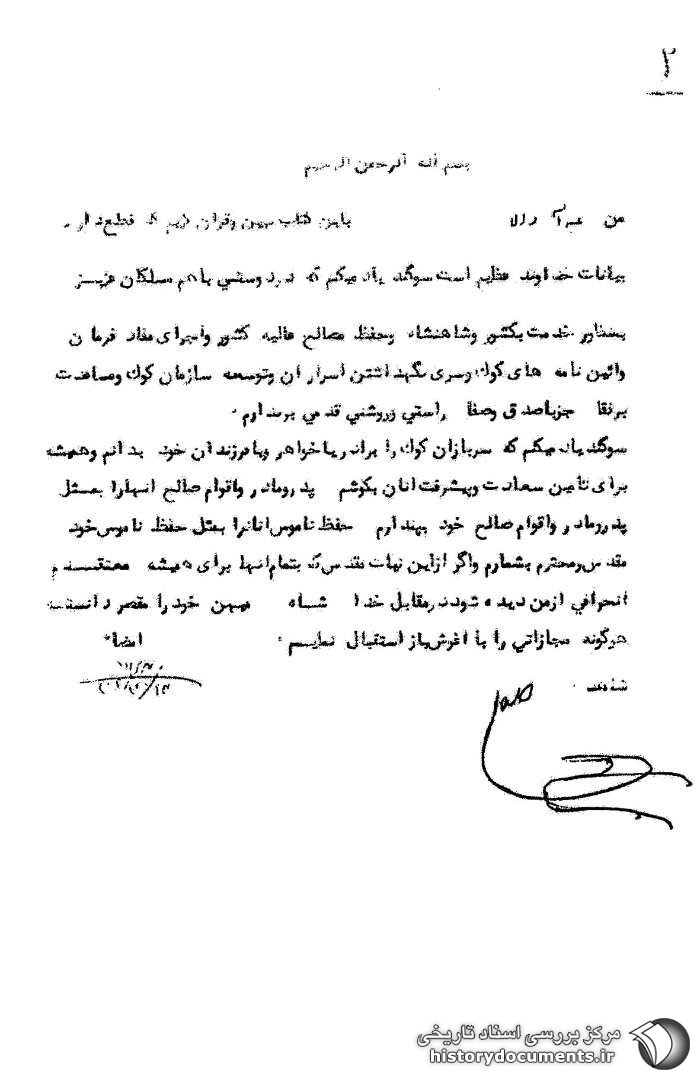 ۲
بسم اله الرحمن الرحیم
من باین کتاب مبین وقران کریم که
بیانات خداوند عظیم است سوگند یاد میکم که در دوستی باهم مسلکان عزیز
بمنظور خدمت بکشور وشاهنشاه وحفظ مصالح عالیه کشور واجرای مفاد فرمان
وائین نامه های کوک وسری نگهداشتن اسرار ان وتوسعه سازمان کوک ومساعدت
برفقا جزباصدق وصفا راستی وروشنی قدمی برندارم .
سوگند یاد میکم که سربازان کوک را برادر یاخواهر ویافرزندان خود بدانم وهمیشه
برای تأمین سعادت وپیشرفت انان بکوشم پدرومادر واقوام صالح انهارا بمثل
پدرومادر واقوام صالح خود پندارم حفظ ناموس انانرا بمثل حفظ ناموس خود
مقدس ومحترم بشمارم واگر ازاین نیات مقدس که بتمام انها برای همیشه معتقدم
انحرافی ازمن دیده شود درمقابل خدا شاه میهن خودرا مقصر دانسته
هرگونه مجازاتی را با اغوش باز استقبال نمایم . امضاء
شاهد .
مرکز بررسی اسناد تاریخی
historydocuments.ir